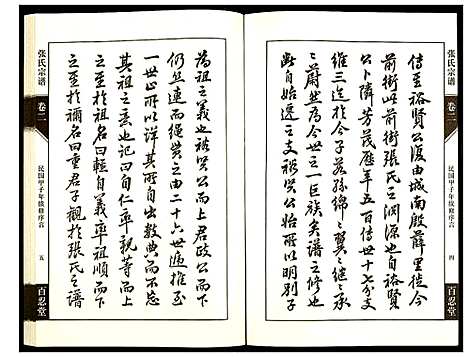 張氏宗譜
卷二
民国甲子年續修序言
四
百忍堂
傳至裕賢公復由城南殷薛里徙今
前街此前街張氏之淵源也自裕賢
公卜隣芳茂歷年五百傳世十七分支
維三迄於今子若孫綿綿翼翼繼繼承承
蔚然為今世之一巨族矣譜之修以明別子
之自始遷之子孫此
張氏宗譜
卷二
民国甲子年續修序言
五
百忍堂
為祖之義也被賢公而上君政公而下
仍然連而繩貫之由二十六世遞推至
一世正所以詳其所自出數典而不忘
祖之意也記曰自仁率親等而上
之至於祖名曰輕自義率祖順而下
之至於禰名曰重君子觀於張氏之譜